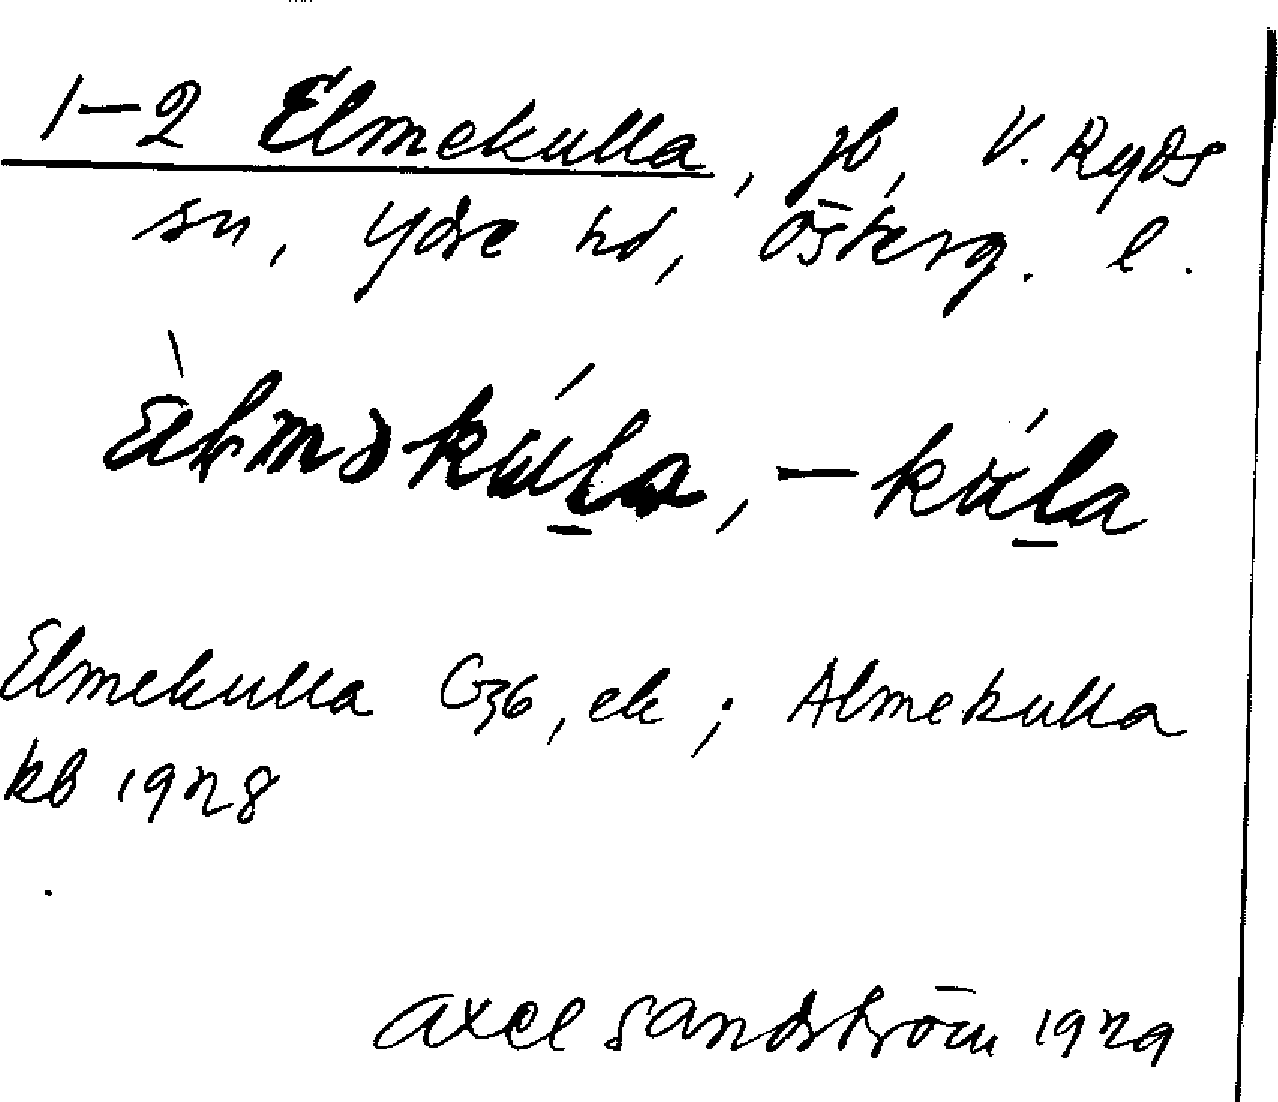 1-2 Elmekulla, jb, V. Ryds
sn, Ydre hd, Österg. l.
Elmekulla G36, ek; Almekulla
kb 1928
Axel Sandström 1929